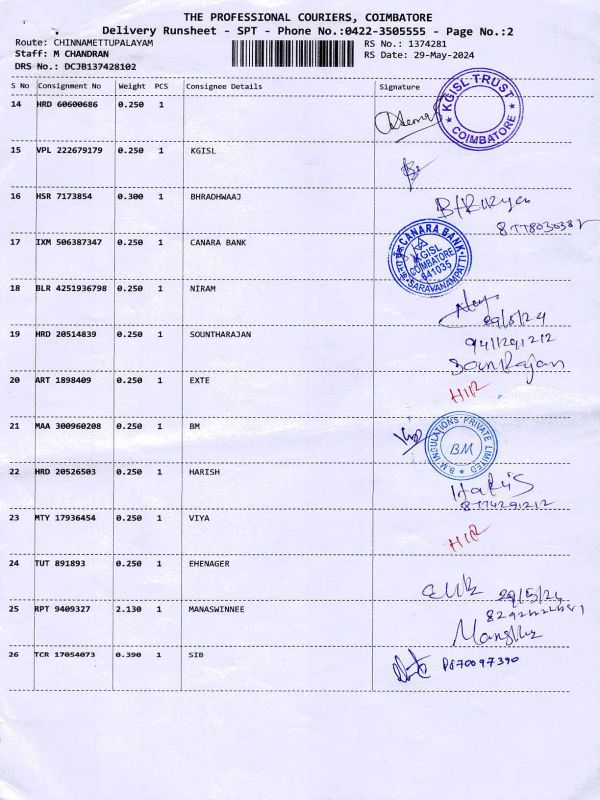 THE PROFESSIONAL COURIERS, COIMBATORE
Delivery Runsheet - SPT - Phone No.:0422-3505555 - Page No.:2
Route: CHINNAMETTUPALAYAM
RS No.: 1374281
Staff: M CHANDRAN
RS Date: 29-May-2024
DRS No.: DCJB137428102
S No Consignment No Weight PCS Consignee Details Signature
14 HRD 60600686 0.250 1
KGISL TRUST
COIMBATORE
15 VPL 222679179 0.250 1 KGISL
16 HSR 7173854 0.300 1 BHRADHWAAJ
8778030382
17 IXM 506387347 0.250 1 CANARA BANK
CANARA BANK
KGISL
COIMBATORE
641035
SARAVANAMPATTI
18 BLR 4251936798 0.250 1 NIRAM
29/5/24
19 HRD 20514839 0.250 1 SOUNTHARAJAN
9411291212
SounRajan
20 ART 1898409 0.250 1 EXTE
HIR
21 MAA 300960208 0.250 1 BM
B.M INSULATIONS PRIVATE LIMITED
BM
22 HRD 20526503 0.250 1 HARISH
HaRiS
8774291212
23 MTY 17936454 0.250 1 VIYA
HIR
24 TUT 891893 0.250 1 EHENAGER
29/5/24
25 RPT 9409327 2.130 1 MANASWINNEE
26 TCR 17054073 0.390 1 SIB